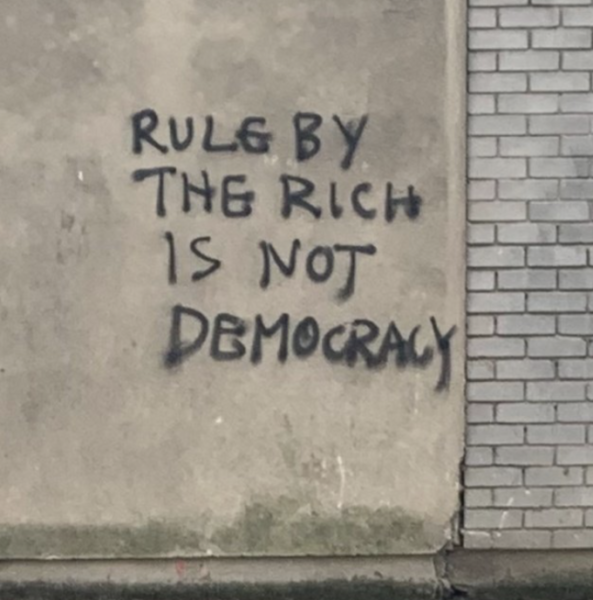 RULE BY
THE RICH
IS NOT
DEMOCRACY